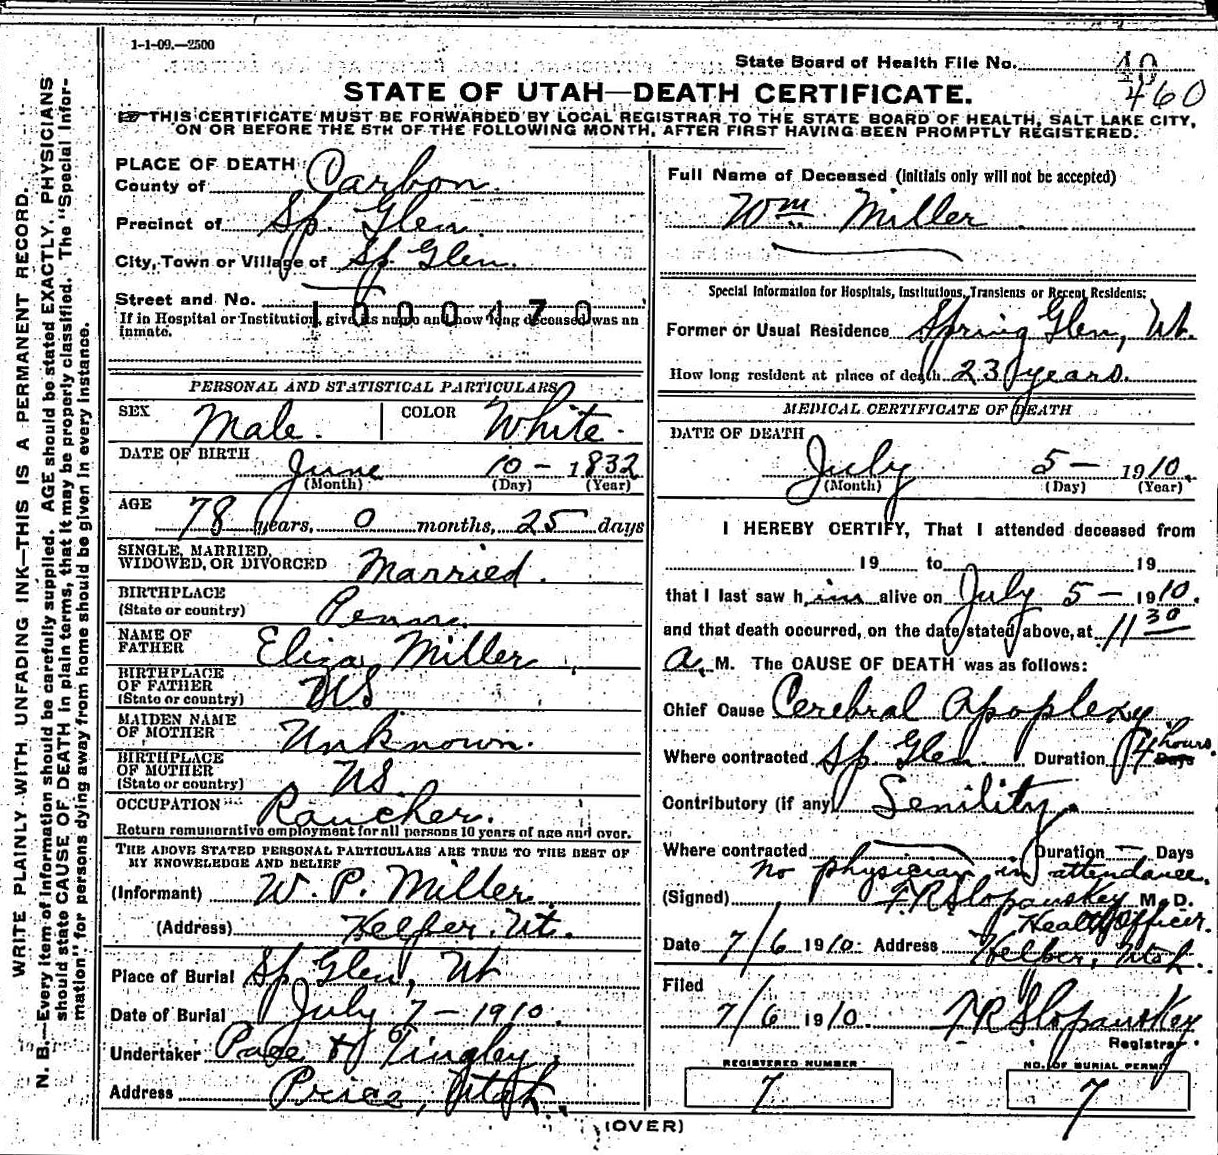 1-1-09.—2500
State Board of Health File No. 10
460
STATE OF UTAH—DEATH CERTIFICATE.
THIS CERTIFICATE MUST BE FORWARDED BY LOCAL REGISTRAR TO THE STATE BOARD OF HEALTH, SALT LAKE CITY,
ON OR BEFORE THE 5TH OF THE FOLLOWING MONTH, AFTER FIRST HAVING BEEN PROMPTLY REGISTERED.
WRITE PLAINLY WITH UNFADING INK—THIS IS A PERMANENT RECORD.
N. B.—Every item of information should be carefully supplied. AGE should be stated EXACTLY. PHYSICIANS
should state CAUSE OF DEATH in plain terms, that it may be properly classified. The "Special Infor-
mation" for persons dying away from home should be given in every instance.
PLACE OF DEATH
County of Carbon.
Precinct of Sp. Glen.
City, Town or Village of Sp. Glen.
Street and No.
If in Hospital or Institution, give its name and how long deceased was an
inmate.
PERSONAL AND STATISTICAL PARTICULARS
SEX Male. COLOR White.
DATE OF BIRTH June 10 – 1832
(Month) (Day) (Year)
AGE 78 years, 0 months, 25 days
SINGLE, MARRIED,
WIDOWED, OR DIVORCED Married.
BIRTHPLACE
(State or country) Penn.
NAME OF
FATHER Eliza Miller
BIRTHPLACE
OF FATHER
(State or country) US
MAIDEN NAME
OF MOTHER Unknown.
BIRTHPLACE
OF MOTHER
(State or country) US.
OCCUPATION Rancher.
Return remunerative employment for all persons 10 years of age and over.
THE ABOVE STATED PERSONAL PARTICULARS ARE TRUE TO THE BEST OF
MY KNOWLEDGE AND BELIEF
(Informant) W. P. Miller.
(Address) Helper, Ut.
Place of Burial Sp. Glen, Ut
Date of Burial July 7 – 1910.
Undertaker Pace & Tingley
Address Price, Utah.
Full Name of Deceased (Initials only will not be accepted)
Wm. Miller
Special Information for Hospitals, Institutions, Transients or Recent Residents:
Former or Usual Residence Spring Glen, Ut.
How long resident at place of death 23 years.
MEDICAL CERTIFICATE OF DEATH
DATE OF DEATH
July 5 – 1910.
(Month) (Day) (Year)
I HEREBY CERTIFY, That I attended deceased from
19 to 19
that I last saw him alive on July 5 – 1910.
and that death occurred, on the date stated above, at 11 30
a. M. The CAUSE OF DEATH was as follows:
Chief Cause Cerebral Apoplexy.
Where contracted Sp. Glen. Duration 4 hours. Days
Contributory (if any) Senility.
Where contracted Duration — Days
no physician in attendance.
(Signed) F R Slopanskey M. D.
Health Officer.
Date 7/6 1910. Address Helper, Utah.
Filed
7/6 1910. F R Slopanskey
Registrar.
REGISTERED NUMBER
7
NO. OF BURIAL PERMIT
7
(OVER)